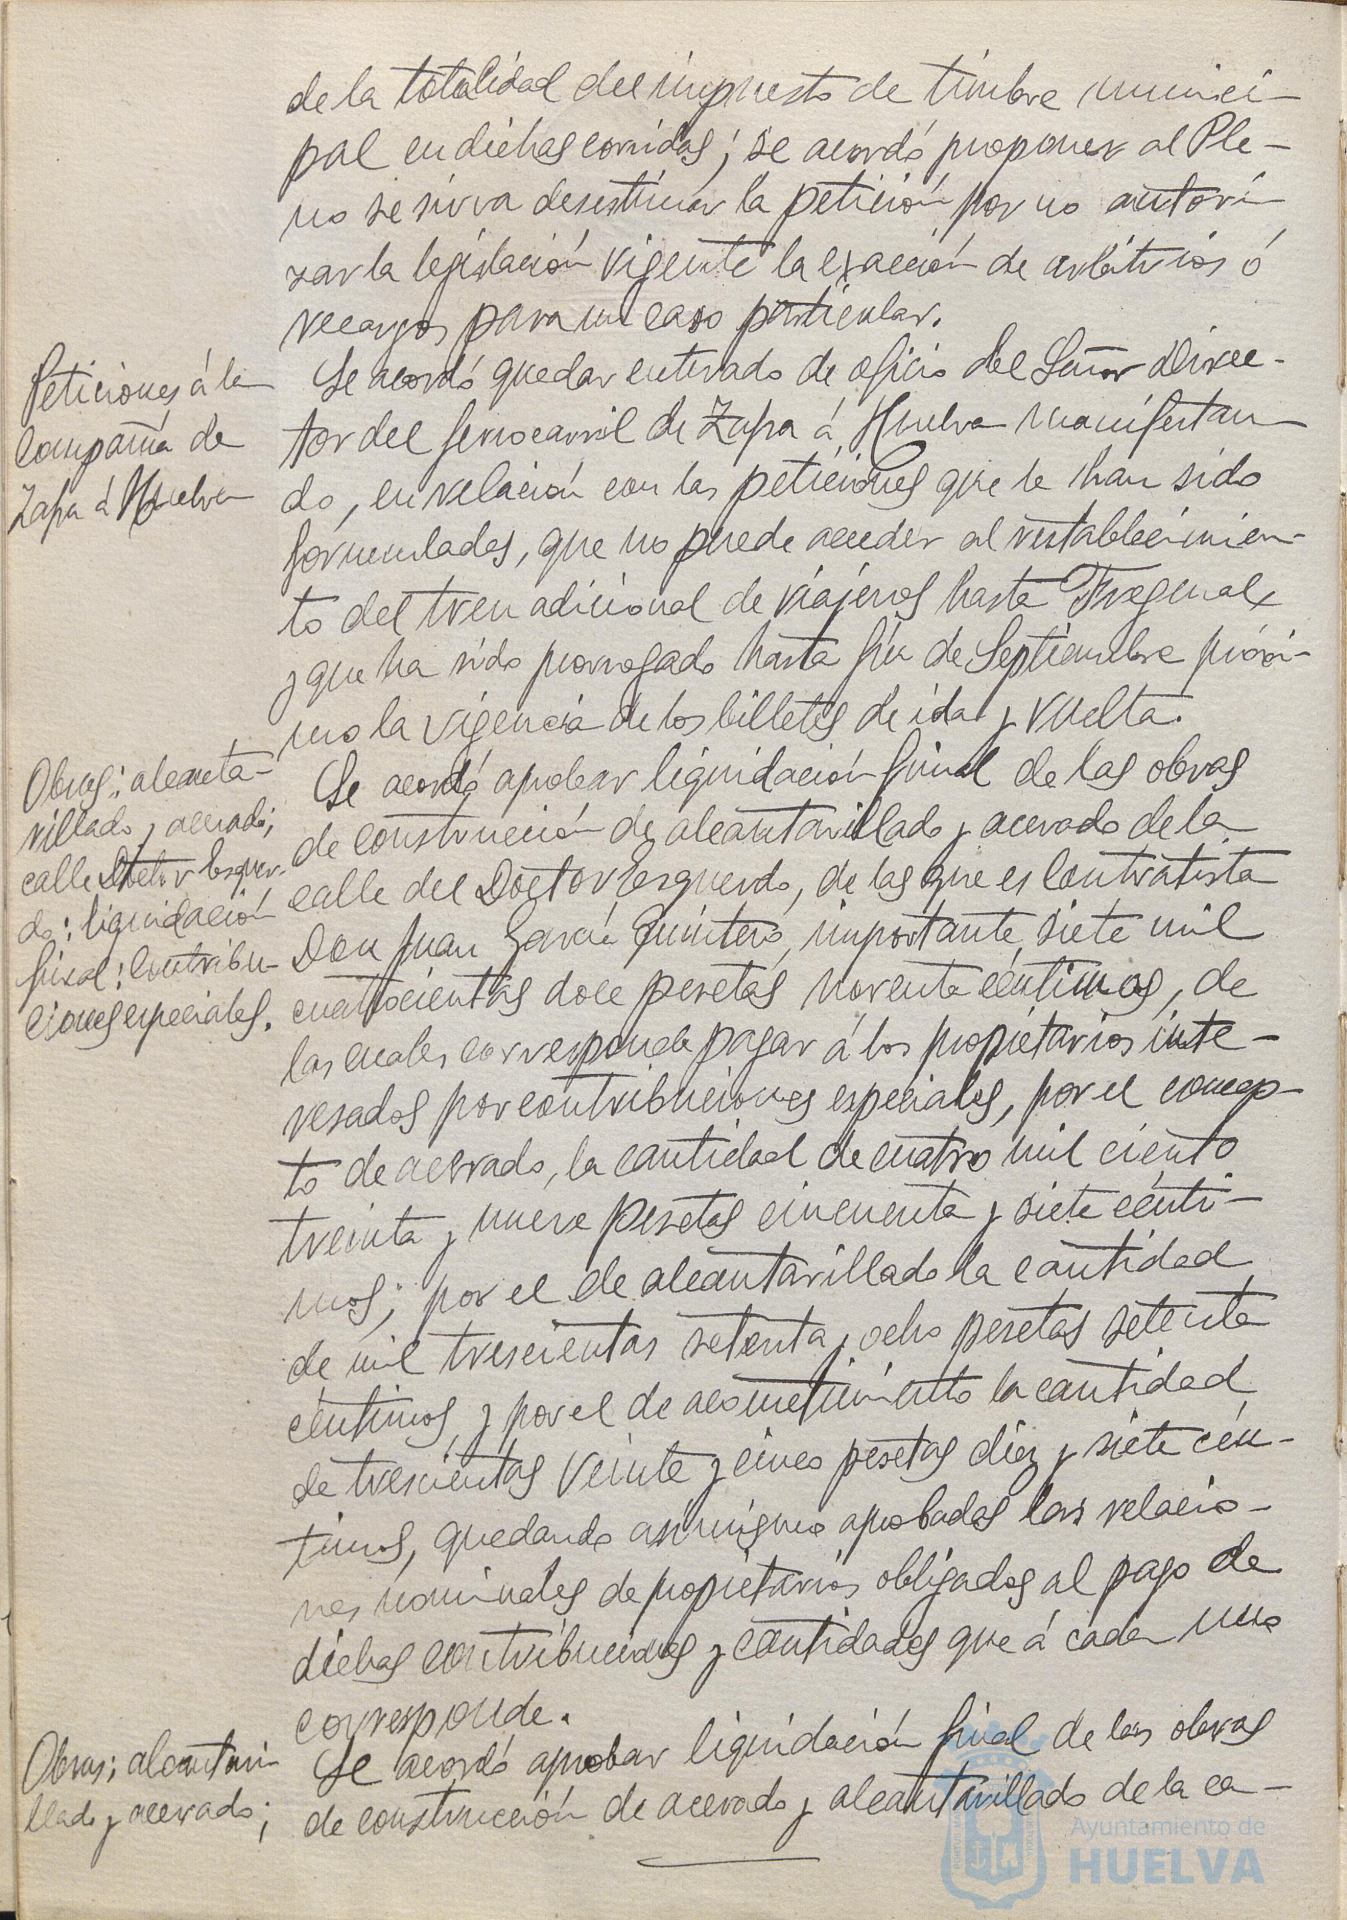 de la totalidad del impuesto de timbre munici-
pal en dichas corridas; se acordó proponer al Ple-
no se sirva desestimar la petición por no autori-
zar la legislación vigente la exacción de arbitrios ó
recargos para un caso particular.
Peticiones á la
Compañía de
Zafra á Huelva
Se acordó quedar enterado de oficio del Señor Direc-
tor del ferrocarril de Zafra á Huelva manifestan-
do, en relación con las peticiones que le han sido
formuladas, que no puede acceder al restablecimien-
to del tren adicional de viajeros hasta Fregenal,
y que ha sido prorrogado hasta fin de Septiembre próxi-
mo la vigencia de los billetes de ida y vuelta.
Obras; alcanta-
rillado y acerado;
calle Doctor Esquer-
do; liquidación
final; Contribu-
ciones especiales.
Se acordó aprobar liquidación final de las obras
de construcción de alcantarillado y acerado de la
calle del Doctor Esquerdo, de las que es Contratista
Don Juan García Quintero, importante siete mil
cuatrocientas doce pesetas noventa céntimos, de
las cuales corresponde pagar á los propietarios inte-
resados por contribuciones especiales, por el concep-
to de acerado, la cantidad de cuatro mil ciento
treinta y nueve pesetas cincuenta y siete cénti-
mos; por el de alcantarillado la cantidad
de mil trescientas setenta y ocho pesetas setenta
céntimos, y por el de acometimiento la cantidad
de trescientas veinte y cinco pesetas diez y siete cén-
timos, quedando asimismo aprobadas las relacio-
nes nominales de propietarios obligados al pago de
dichas contribuciones y cantidades que á cada uno
corresponde.
Obras; alcantari
llado y acerado;
Se acordó aprobar liquidación final de las obras
de construcción de acerado y alcantarillado de la ca-
Ayuntamiento de
HUELVA